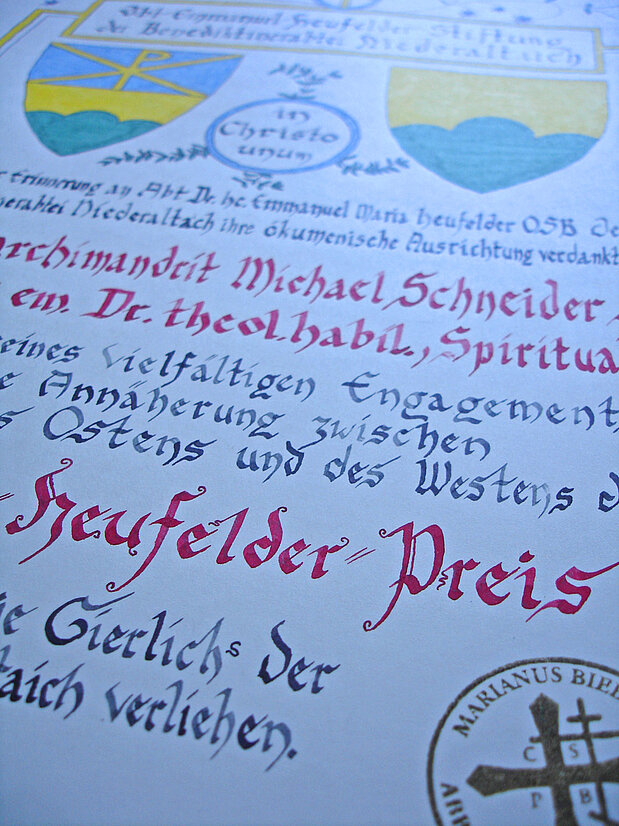 Abt-Emmanuel Heufelder Stiftung
der Benediktinerabtei Niederaltaich
in
Christo
unum
r Erinnerung an Abt Dr. hc. Emmanuel Maria Heufelder OSB de
nerabtei Niederaltach ihre ökumenische Ausrichtung verdankt
rchimandrit Michael Schneider
em. Dr. theol. habil., Spiritua
eines vielfältigen Engagement
e Annäherung zwischen
s Ostens und des Westens d
-Heufelder-Preis
ie Gierlichs der
taich verliehen.
MARIANUS BIE
C S
P B
ABB